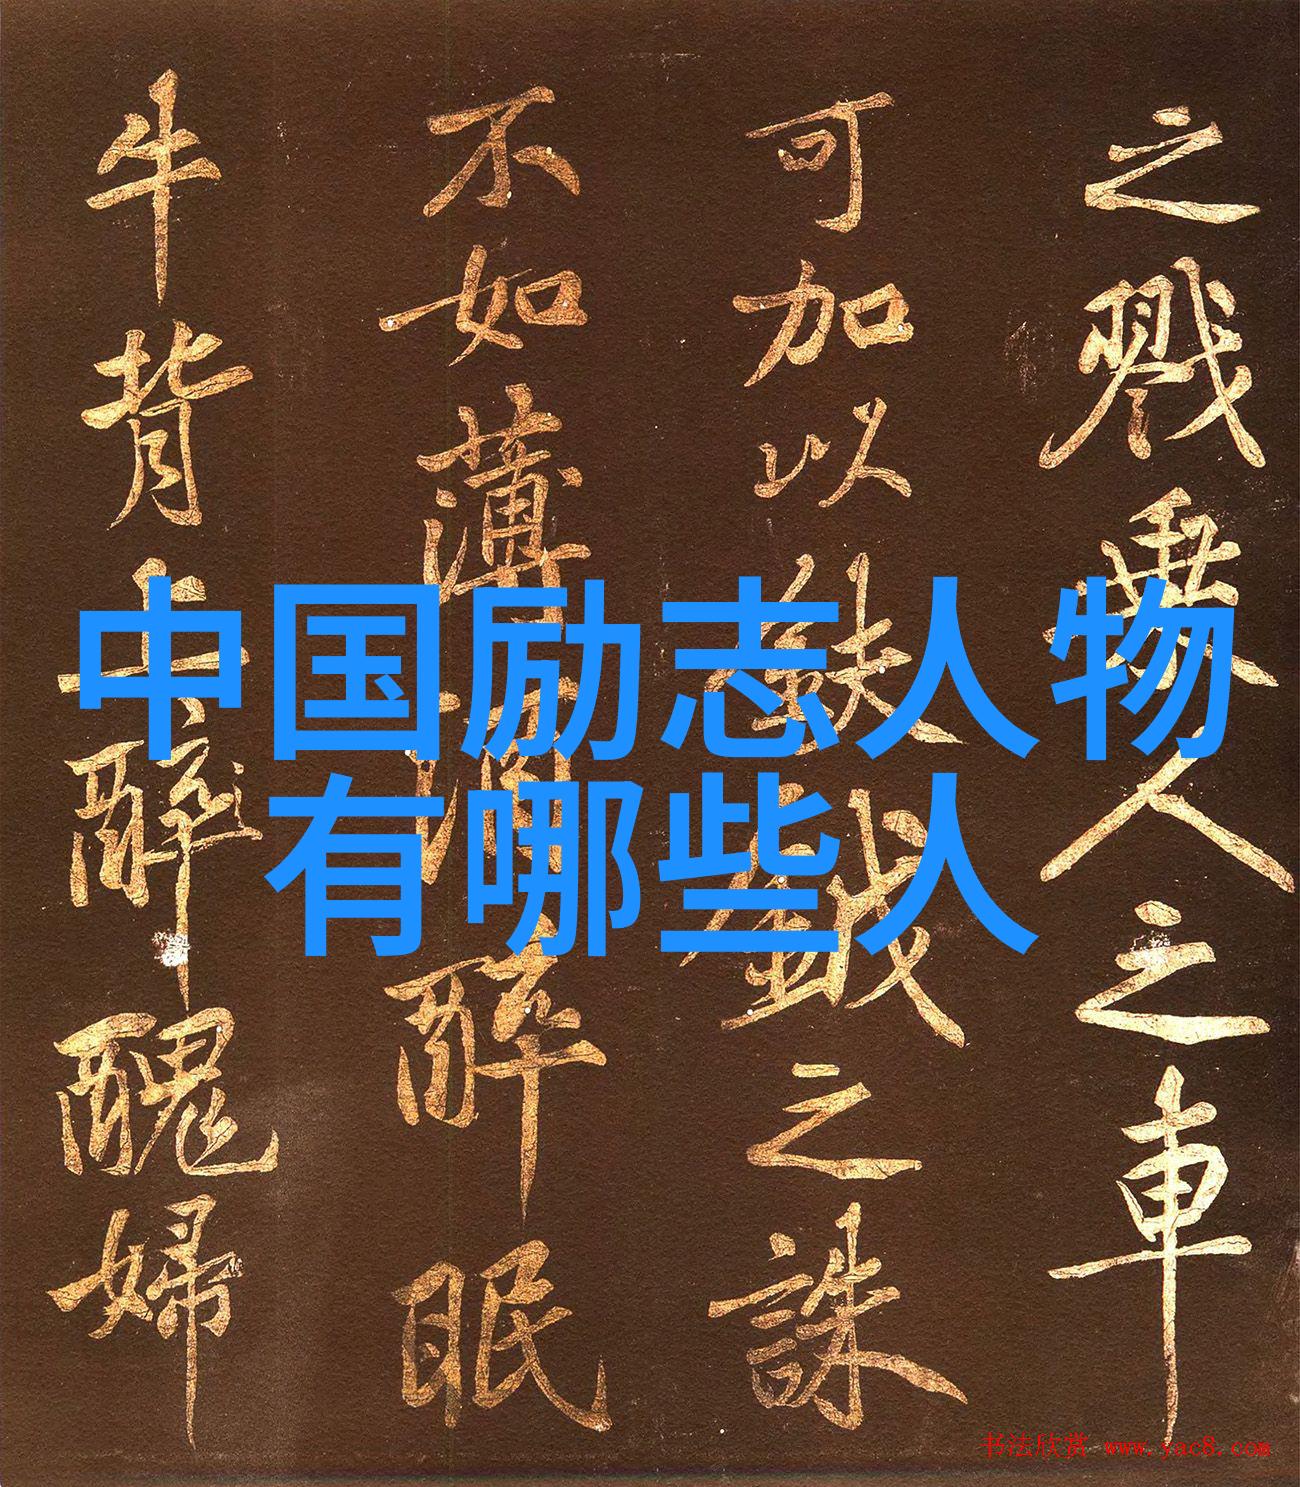 中国励志人物
有哪些人
之戮乘人之車
可加以鈇鉞之誅
不如薄酒醉眠
牛背上醉醜婦
书法欣赏 www.yac8.com